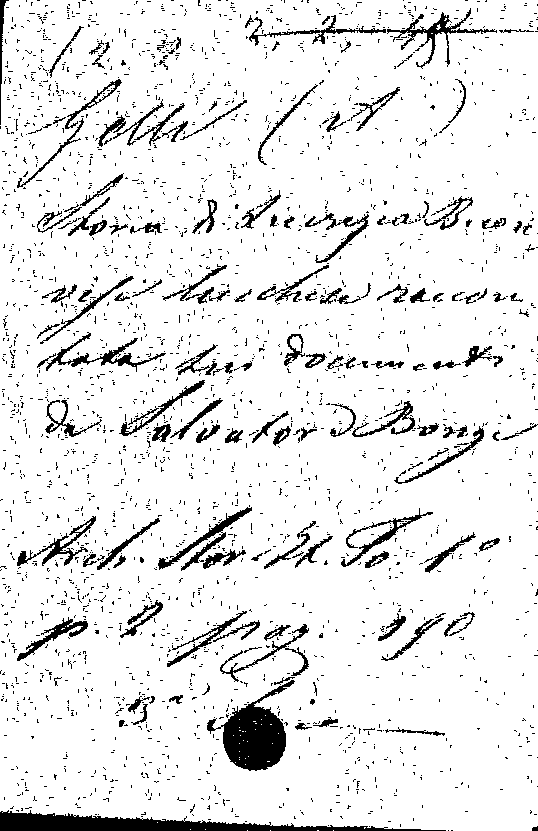 12. 2 2, 2,
Gelli (A.)
Storia di Lucrezia Buon
visi lucchese raccon
tata sui documenti
da Salvatore Bongi
Arch. Stor. It. To. 1º
p. 2 pag. 190
3ª